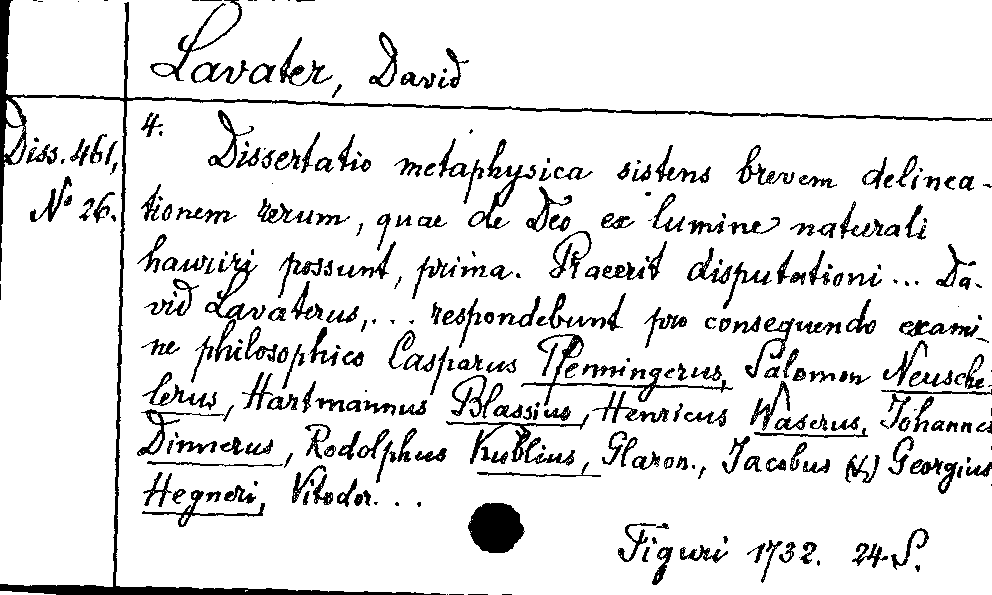 Lavater, David
4.
Diss. 461,
No 26.
Dissertatio metaphysica sistens brevem delinea-
tionem rerum, quae de Deo ex lumine naturali
hauriri possunt, prima. Praeerit disputationi... Da-
vid Lavaterus,... respondebunt pro consequendo exami-
ne philosophico Casparus Pfenningerus, Salomon Neusche-
lerus, Hartmannus Blassius, Henricus Waserus, Johannes
Dinnerus, Rodolpheus Kublius, Glaron., Jacobus (&) Georgius
Hegneri, Vitodor. . .
Tiguri 1732. 24 S.